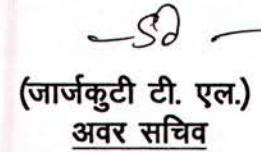 (जार्जकुटी टी. एल.)
अवर सचिव